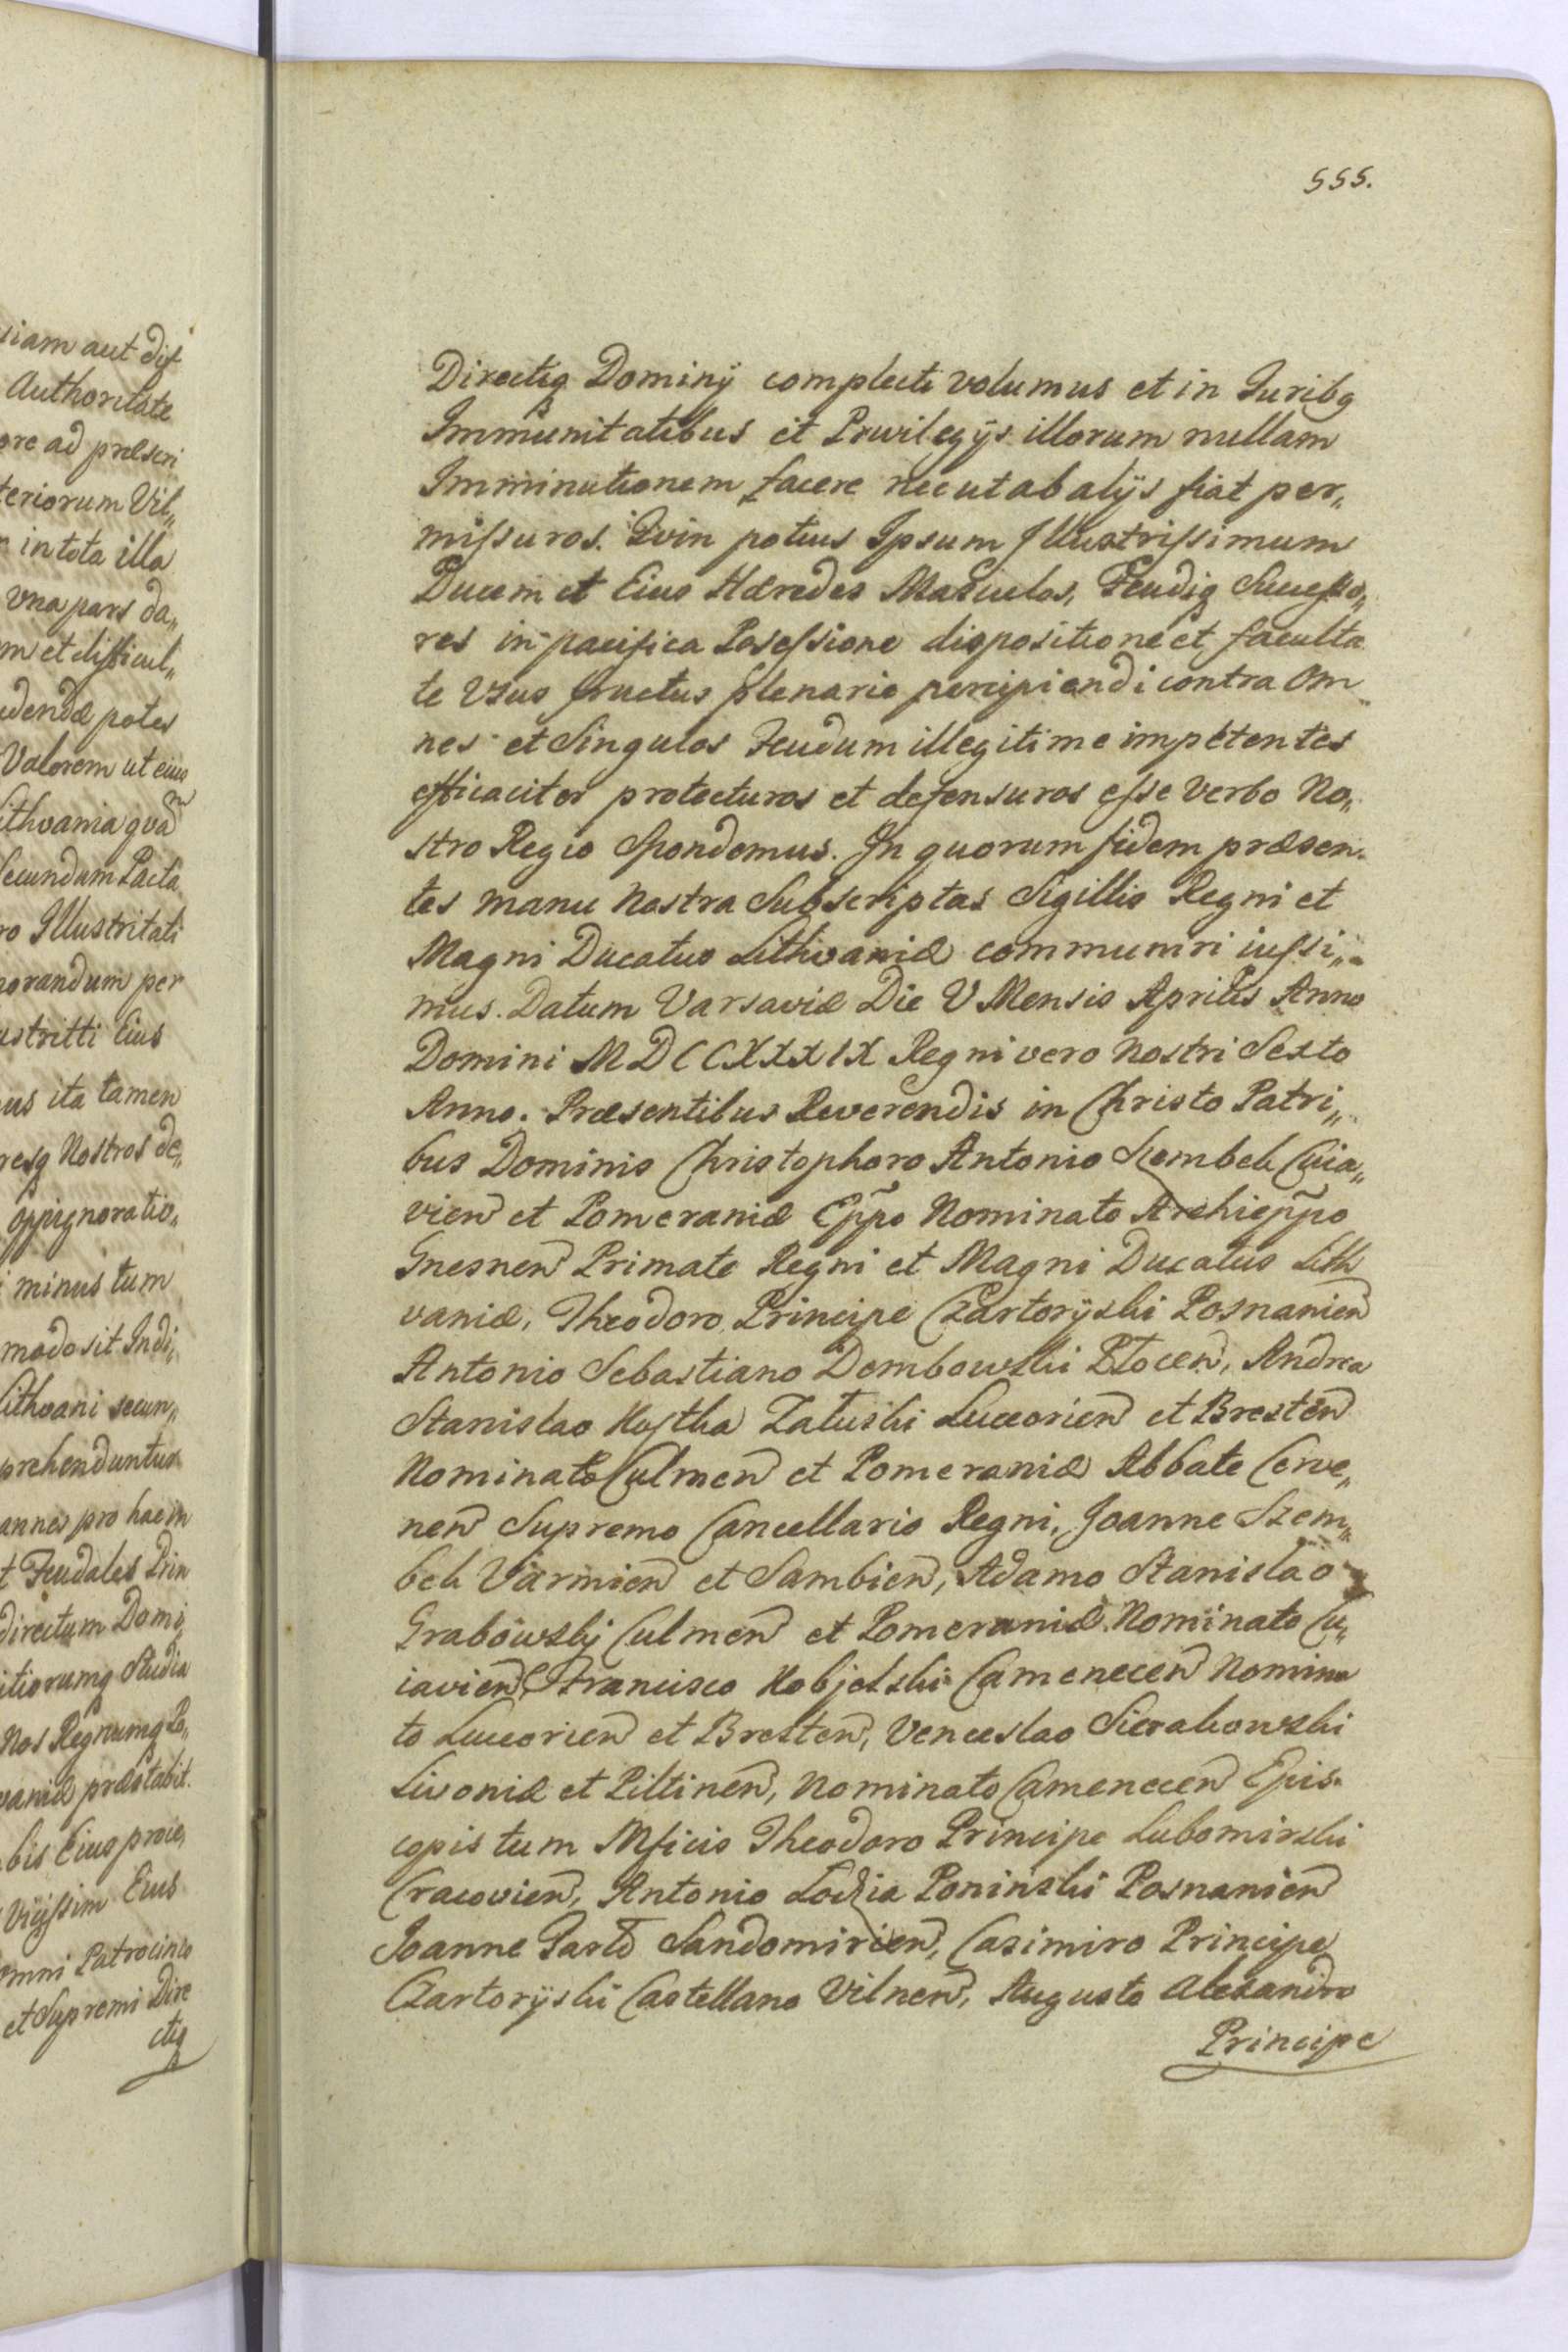 siam aut dif
Authoritate
ore ad præscri
teriorum Vil„
in tota illa
vna pars da„
m et difficul„
udendæ potes
Valorem ut eius
ithvania qvam
Secundum Pacta
ro Illustritati
norandum per
ustritti Eius
us ita tamen
resq Nostros de„
oppignoratio„
i minus tum
modo sit Indi„
Lithvani secun„
prehenduntur
annes pro haem
t Feudales Prin
directum Domi„
itiorumq Studia
Nos Regnumq Po„
vaniæ præstabit.
bis Eius proie,
Vicissim Eius
omni Patrocinio
et Supremi Dire
ctiq
555.
Directiq Dominij complecti volumus et in Juribq
Immunitatibus et Privilegijs illorum nullam
Imminutionem facere nec ut ab alijs fiat per„
missuros. Qvin potius Ipsum Illustrissimum
Ducem et Eius Hæredes Masculos, Feudiq Successo„
res in pacifica Posessione dispositione et faculta
te Usus fructus plenarie percipiendi contra Om
nes et Singulos Feudum illegitime impetentes
efficaciter protecturos et defensuros esse Verbo No„
stro Regio Spondemus. In quorum fidem præsen„
tes manu Nostra Subscriptas Sigillis Regni et
Magni Ducatus Lithvaniæ communiri iussi„
mus. Datum Varsaviæ Die V Mensis Aprilis Anno
Domini MDCCXXXIX Regni vero Nostri Sexto
Anno. Præsentibus Reverendis in Christo Patri„
bus Dominis Christophoro Antonio Szembek Cuia„
vien et Pomeraniæ Eppo Nominato Archieppo
Gnesnen Primate Regni et Magni Ducatus Lith
vaniæ, Theodoro Principe Czartoryski Posnanien
Antonio Sebastiano Dembowski Płocen, Andrea
Stanislao Kostka Załuski Luceorien et Bresten
Nominato Culmen et Pomeraniæ Abbate Cerve„
nen Supremo Cancellario Regni, Joanne Szem„
bek Varmien et Sambien, Adamo Stanislao
Grabowskj Culmen et Pomeraniæ Nominato Cu„
iavien, Francisco Kobjelski Camenecen Nomina
to Luceorien et Bresten, Venceslao Sierakowski
Livoniæ et Piltinen, Nominato Camenecen Epis„
copis tum Mficis Theodoro Principe Lubomirski
Cracovien, Antonio Lodzia Poninski Posnanien
Joanne Tarło Sandomirien, Casimiro Principe
Czartoryski Castellano Vilnen, Augusto Alexandro
Principe